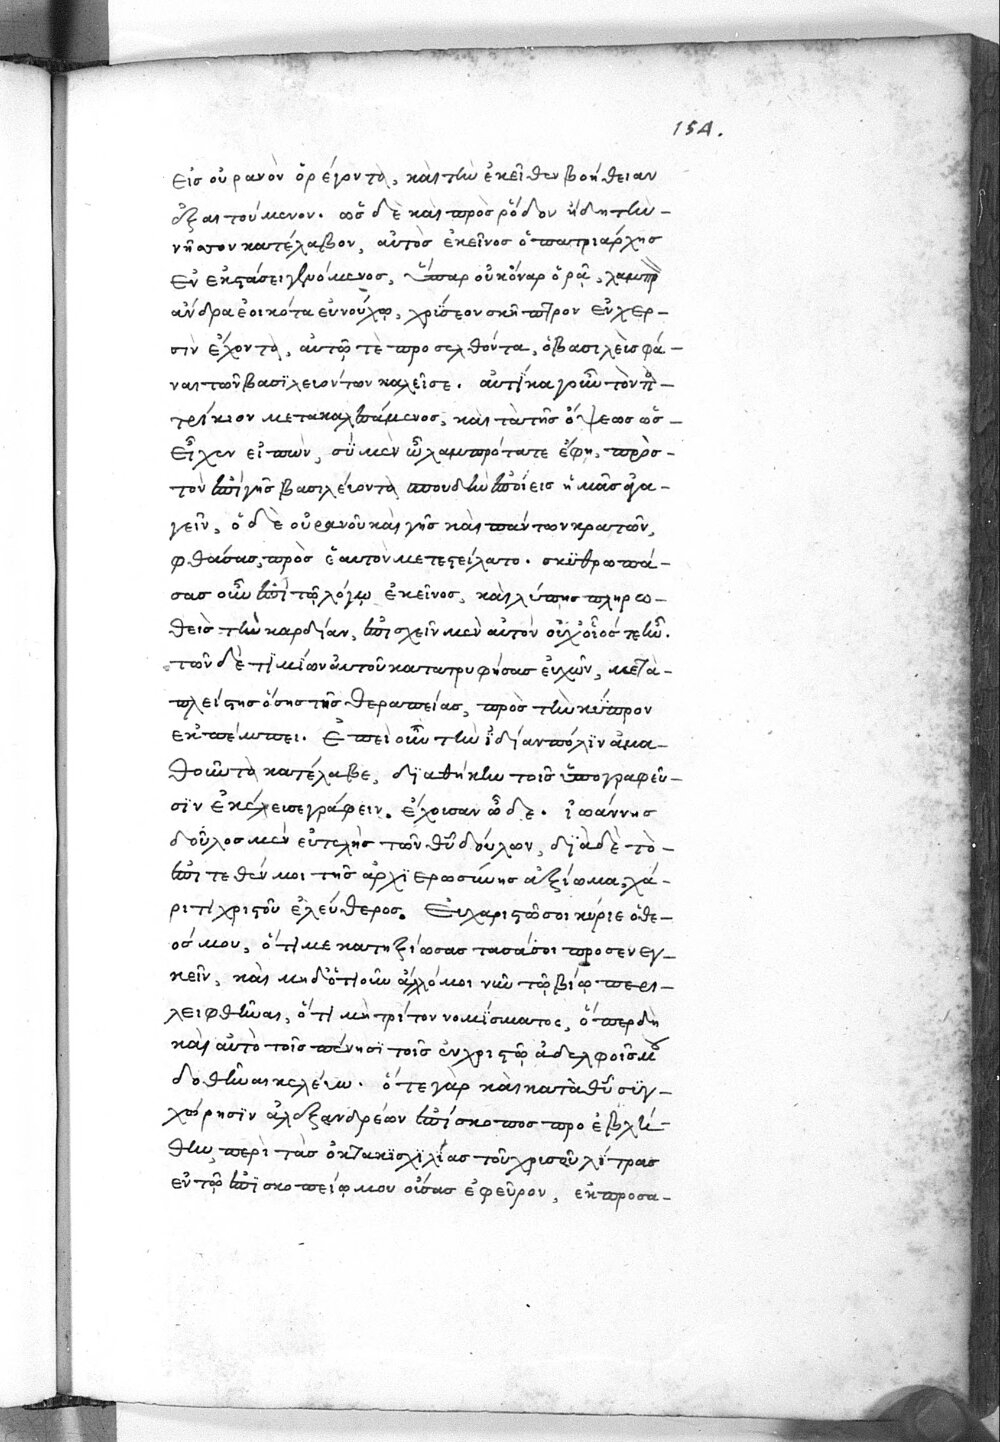 154.
εἰς οὐρανὸν ὀρέγοντα, καὶ τὴν ἐκεῖθεν βοήθειαν
ἐξαιτούμενον. ὡς δὲ καὶ πρὸς ρόδον ἤδη τὴν
νῆσον κατέλαβον, αὐτὸς ἐκεῖνος ὁ πατριάρχης
ἐν ἐκστάσει γενόμενος, ὕπαρ οὐκ ὄναρ ὁρᾷ, λαμπρ
ἄνδρα ἐοικότα εὐνούχῳ, χρύσεον σκῆπτρον ἐν χερ-
σὶν ἔχοντα, αὐτῷ τὲ προσελθόντα, ὁ βασιλεὺς φά-
ναι τῶν βασιλευόντων καλεῖ σε. αὐτίκα γοῦν τὸν π-
τρίκιον μετακαλεσάμενος, καὶ τὰ τῆς ὄψεως ὡς
εἶχεν εἰπὼν, σὺ μὲν ὦ λαμπρότατε ἔφη, πρὸς
τὸν ἐπὶ γῆς βασιλεύοντα σπουδὴν ἐποίεις ἡμᾶς ἀγα-
γεῖν, ὁ δὲ οὐρανοῦ καὶ γῆς καὶ πάντων κρατῶν,
φθάσας, πρὸς ἑαυτὸν μετεστείλατο. σκυθρωπά-
σας οὖν ἐπὶ τῷ λόγῳ ἐκεῖνος, καὶ λύπης πληρω-
θεὶς τὴν καρδίαν, ἐπισχεῖν μὲν αὐτὸν οὐχ οἷός τε ἦν.
τῶν δὲ τιμίων αὐτοῦ κατατρυφήσας εὐχῶν, μετὰ
πλείστης ὅσης τῆς θεραπείας, πρὸς τὴν κύπρον
ἐκπέμπει. Ἐπεὶ οὖν τὴν ἰδίαν πόλιν ἀμα-
θοῦντα κατέλαβε, διαθήκην τοῖς ὑπογραφεῦ-
σιν ἐκέλευσε γράφειν. ἔχουσαν ὧδε. ἰωάννης
δοῦλος μὲν εὐτελὴς τῶν θῦ δούλων, διὰ δὲ τὸ
ἐπιτεθέν μοι τῆς ἀρχιερωσύνης ἀξίωμα, χά-
ριτι χριστοῦ ἐλεύθερος. Εὐχαριστῶ σοι κύριε ὁ θε-
ός μου, ὅτι με κατηξίωσας τα σά σοι προσενεγ-
κεῖν, καὶ μηδ' ὁτιοῦν ἄλλό μοι νῦν τῷ βίῳ περι-
λειφθῆναι, ὅτι μὴ τρίτον νομίσματος, ὅπερ δὴ
καὶ αὐτὸ τοῖς πένησι τοῖς ἐν χριστῷ ἀδελφοῖς μου
δοθῆναι κελεύω. ὅτε γὰρ κατὰ θῦ συγ-
χώρησιν ἀλεξανδρέων ἐπίσκοπος προεβλή-
θην, περὶ τὰς ὀκτακισχιλίας τοῦ χρυσοῦ λίτρας
ἐν τῷ ἐπισκοπείῳ μου οὔσας ἐφεῦρον, ἐκ προσα-